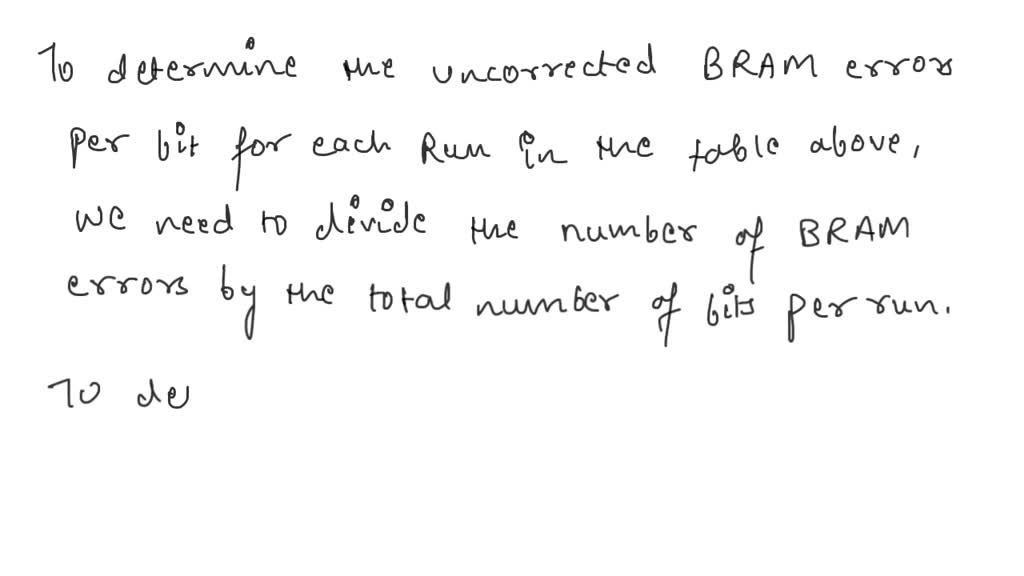 To determine the uncorrected BRAM errors
per bit for each Run in the table above,
we need to divide the number of BRAM
errors by the total number of bits per run.
To de